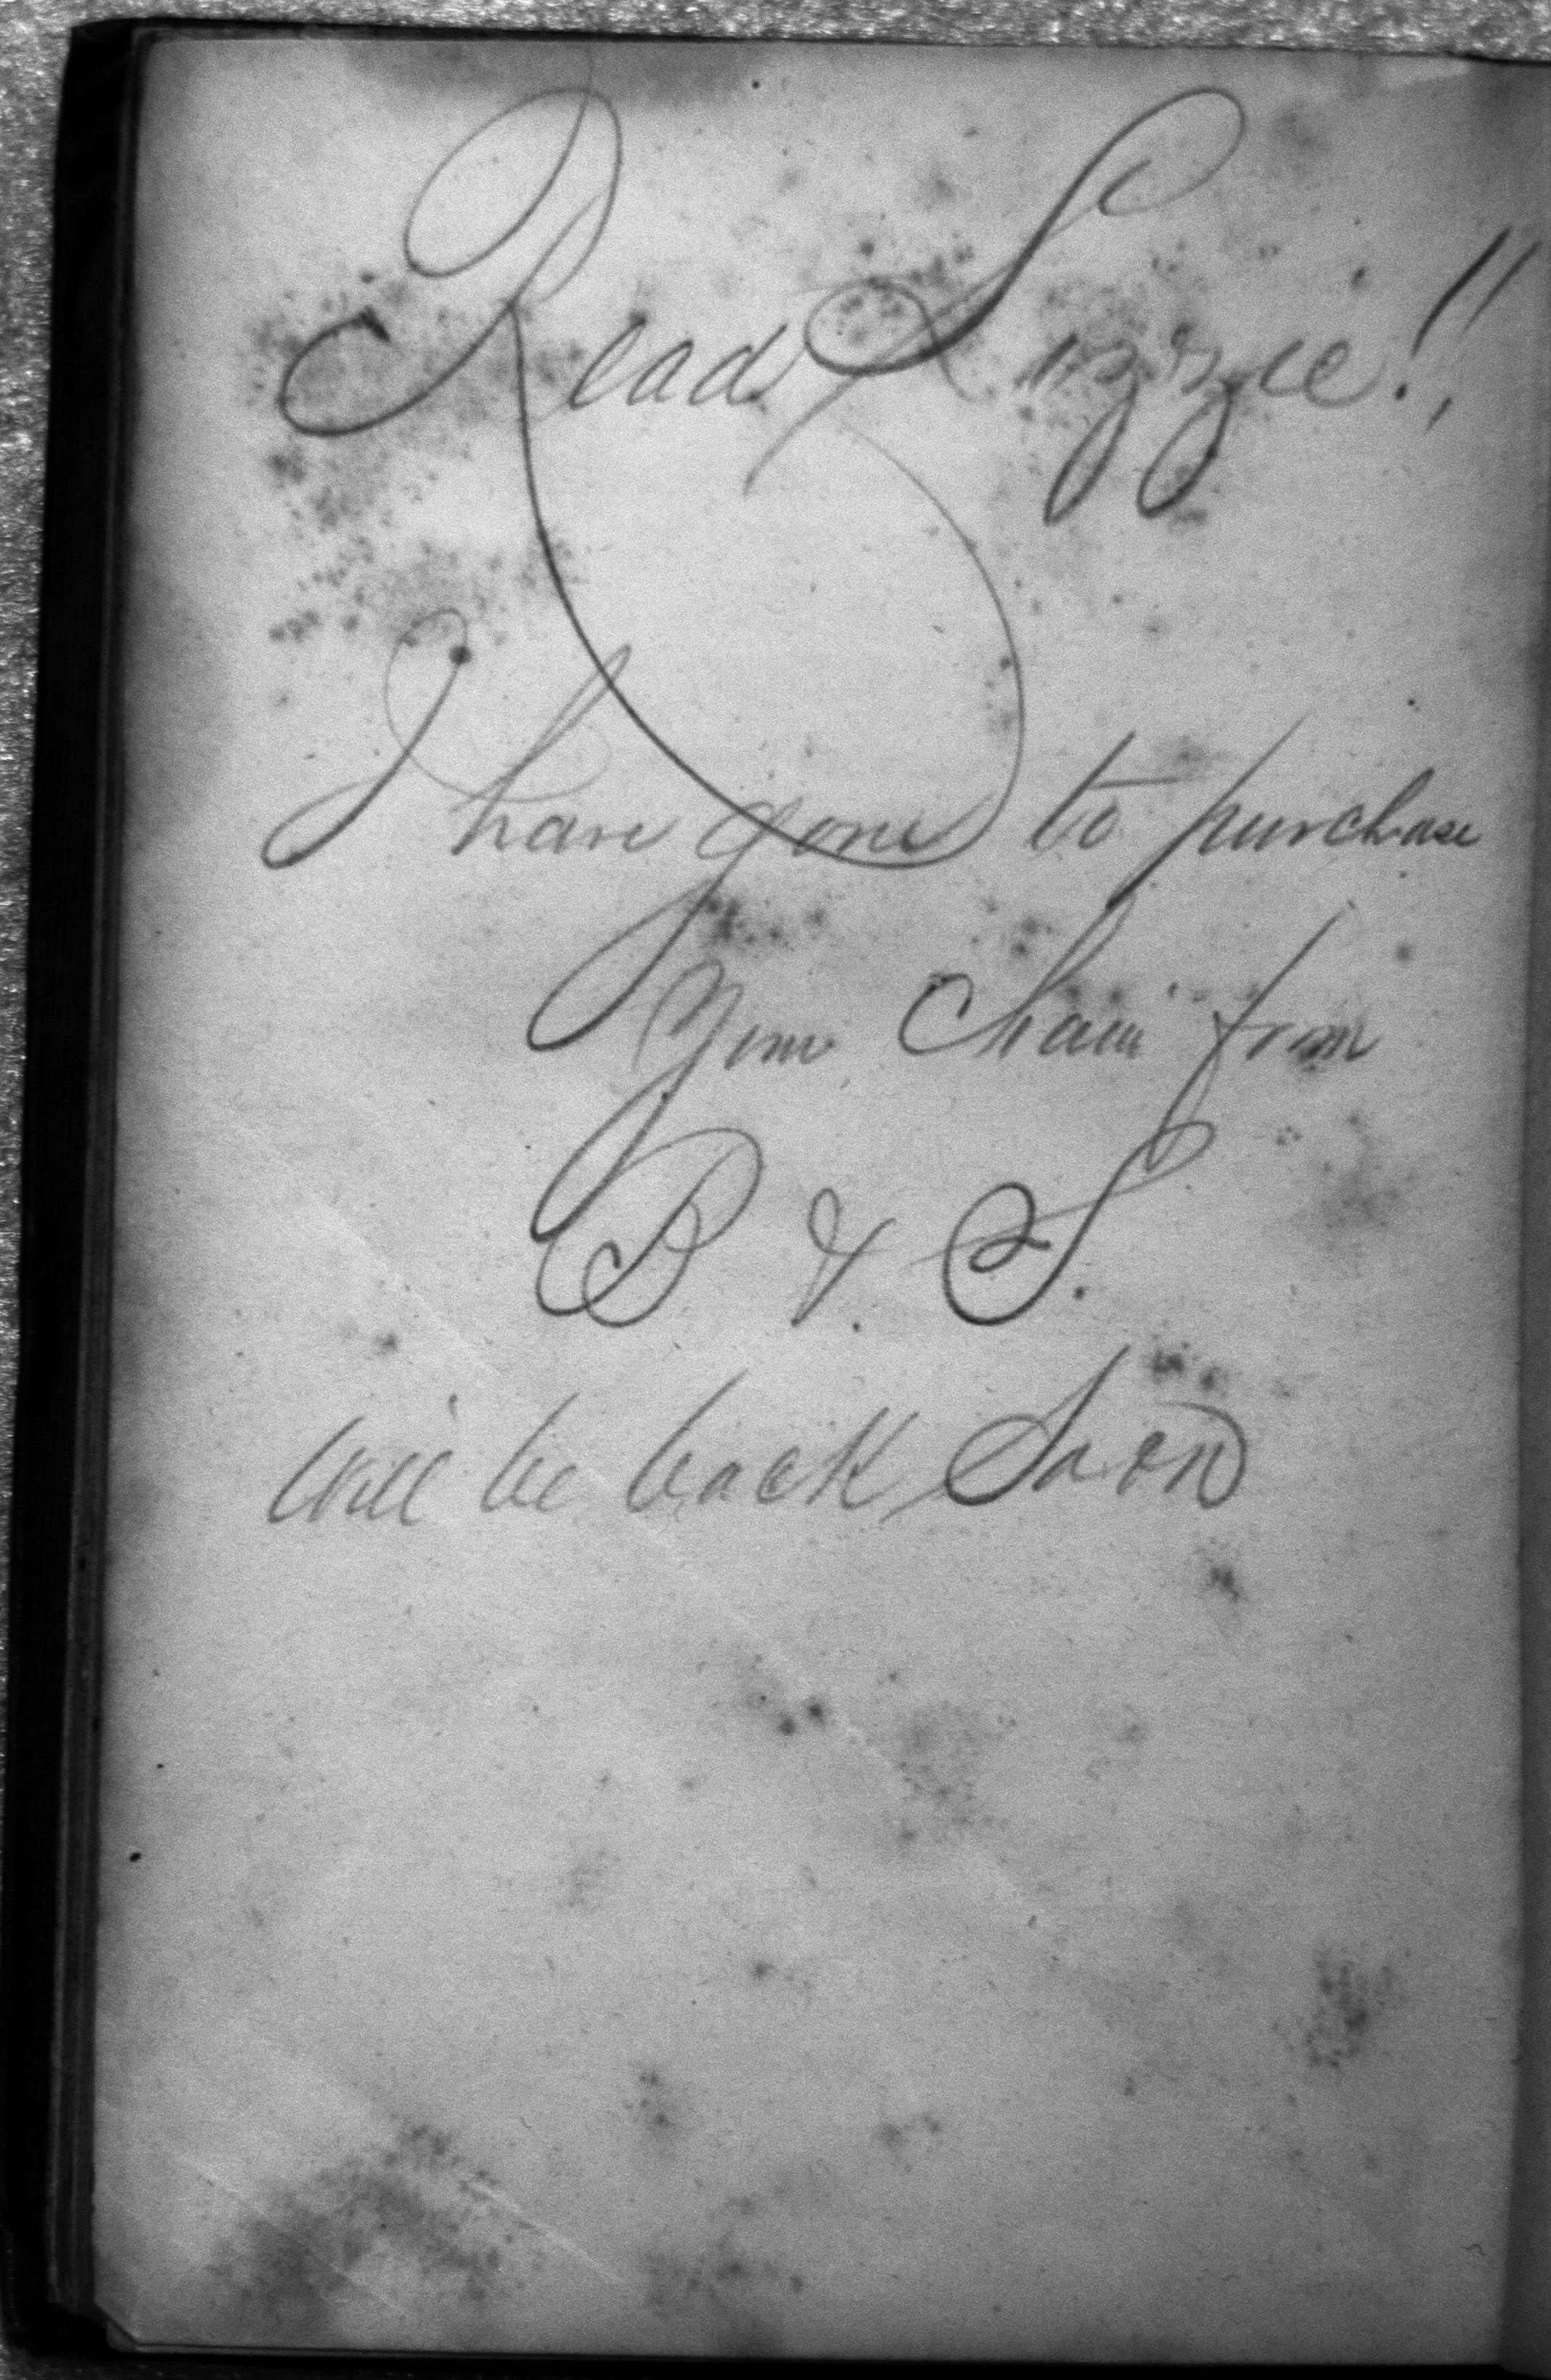 Read Lizzie!!
I have gone to purchase
Your Chain from
B & S.
Will be back Soon